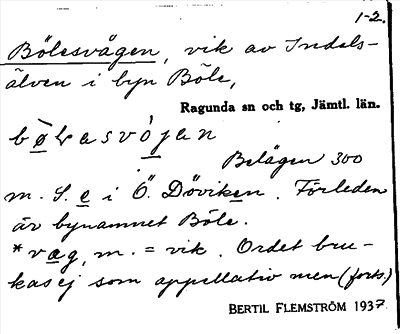 1-2.
Bölesvågen, vik av Indals-
älven i byn Böle,
Ragunda sn och tg, Jämtl. län.
Belägen 300
m. S. e i Ö. Döviken. Förleden
är bynamnet Böle.
*væg, m. = vik. Ordet bru-
kas ej som appellativ men (forts.)
BERTIL FLEMSTRÖM 1937.